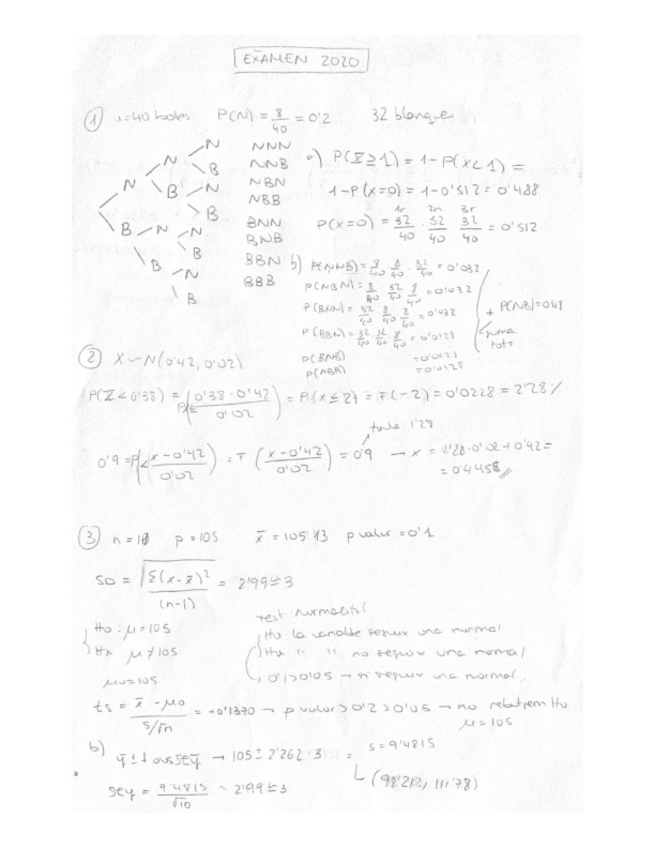 EXAMEN 2020
① n=40 boles P(N) = 8/40 = 0'2 32 blanques
N NNN
N B NNB
N B N NBN
B NBB
B N N BNN
B BNB
B N BBN
B BBB
a) P(X≥1) = 1 - P(X<1) =
1-P(x=0) = 1-0'512 = 0'488
1r 2n 3r
P(x=0) = 32/40 · 32/40 · 32/40 = 0'512
b) P(NNB) = 8/40 · 8/40 · 32/40 = 0'032
P(NBN) = 8/40 · 32/40 · 8/40 = 0'032
P(BNN) = 32/40 · 8/40 · 8/40 = 0'032
P(BBN) = 32/40 · 32/40 · 8/40 = 0'0128
P(BNB) = 0'0128
P(NBB) = 0'0128
+ P(NB)=
suma
tots
② X ~ N(0'42, 0'02)
P(X<0'38) = P(z≤ 0'38-0'42 / 0'02) = P(x≤2) = F(-2) = 0'0228 = 2'28%
taula 1'28
0'9 = P(< x-0'42 / 0'02) = F (x-0'42 / 0'02) = 0'9 → x = 1'28·0'02+0'42 =
= 0'4456
③ n=10 p=105 x̄ = 105'13 p valor = 0'1
SD = √ Σ(x-x̄)² / (n-1) = 2'99 ≅ 3
Ho: μ=105
HA μ≠105
μo=105
Test normalitat
Ho: la variable segueix una normal
HA " " no segueix una normal
0'1>0'05 → sí segueix una normal.
ts = x̄ - μo / s/√n = +0'1370 → p valor > 0'2 > 0'05 → no rebutgem Ho
μ = 105
b) ȳ ± t → 105 ± 2'262 · 3 =
s = 9'4815
(98'212, 111'78)
SEy = 9'4815 / √10 = 2'99 ≅ 3